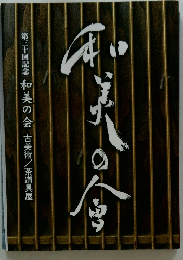 和美の會
第三十回記念 和美の会 古美術／茶道具展